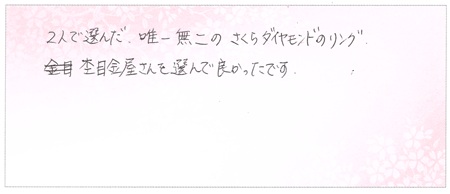 2人で選んだ、唯一無二の さくらダイヤモンドのリング.
杢目金屋さんを選んで良かったです.